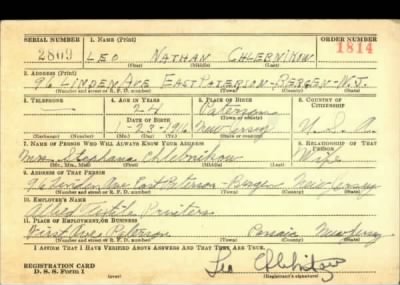 SERIAL NUMBER 1. NAME (Print) ORDER NUMBER
2809 LEO NATHAN CHLEBNIKOW 1814
(First) (Middle) (Last)
2. ADDRESS (Print)
96 LINDEN AVE EAST PATERSON-BERGEN-N.J.
(Number and street or R. F. D. number) (Town) (County) (State)
3. TELEPHONE 4. AGE IN YEARS 5. PLACE OF BIRTH 6. COUNTRY OF CITIZENSHIP
— 24 Paterson
DATE OF BIRTH (Town or county)
1-23-1916 New Jersey U. S. A.
(Exchange) (Number) (Mo.) (Day) (Yr.) (State or country)
7. NAME OF PERSON WHO WILL ALWAYS KNOW YOUR ADDRESS 8. RELATIONSHIP OF THAT PERSON
Mrs. Chlebnikow Wife
(Mr., Mrs., Miss) (First) (Middle) (Last)
9. ADDRESS OF THAT PERSON
96 Linden Ave East Paterson - Bergen New Jersey
(Number and street or R. F. D. number) (Town) (County) (State)
10. EMPLOYER'S NAME
Allied Textile Printers
11. PLACE OF EMPLOYMENT OR BUSINESS
First Ave Paterson Passaic New Jersey
(Number and street or R. F. D. number) (Town) (County) (State)
I AFFIRM THAT I HAVE VERIFIED ABOVE ANSWERS AND THAT THEY ARE TRUE.
REGISTRATION CARD
D. S. S. Form 1 (over) Leo (Registrant's signature)